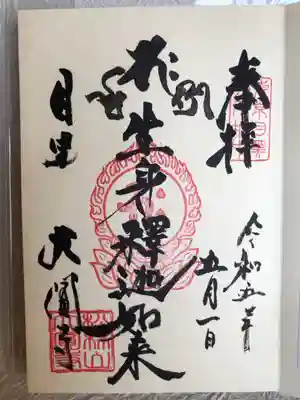 奉拝
令和五年
五月一日
生身釋迦如来
目黒 大圓寺